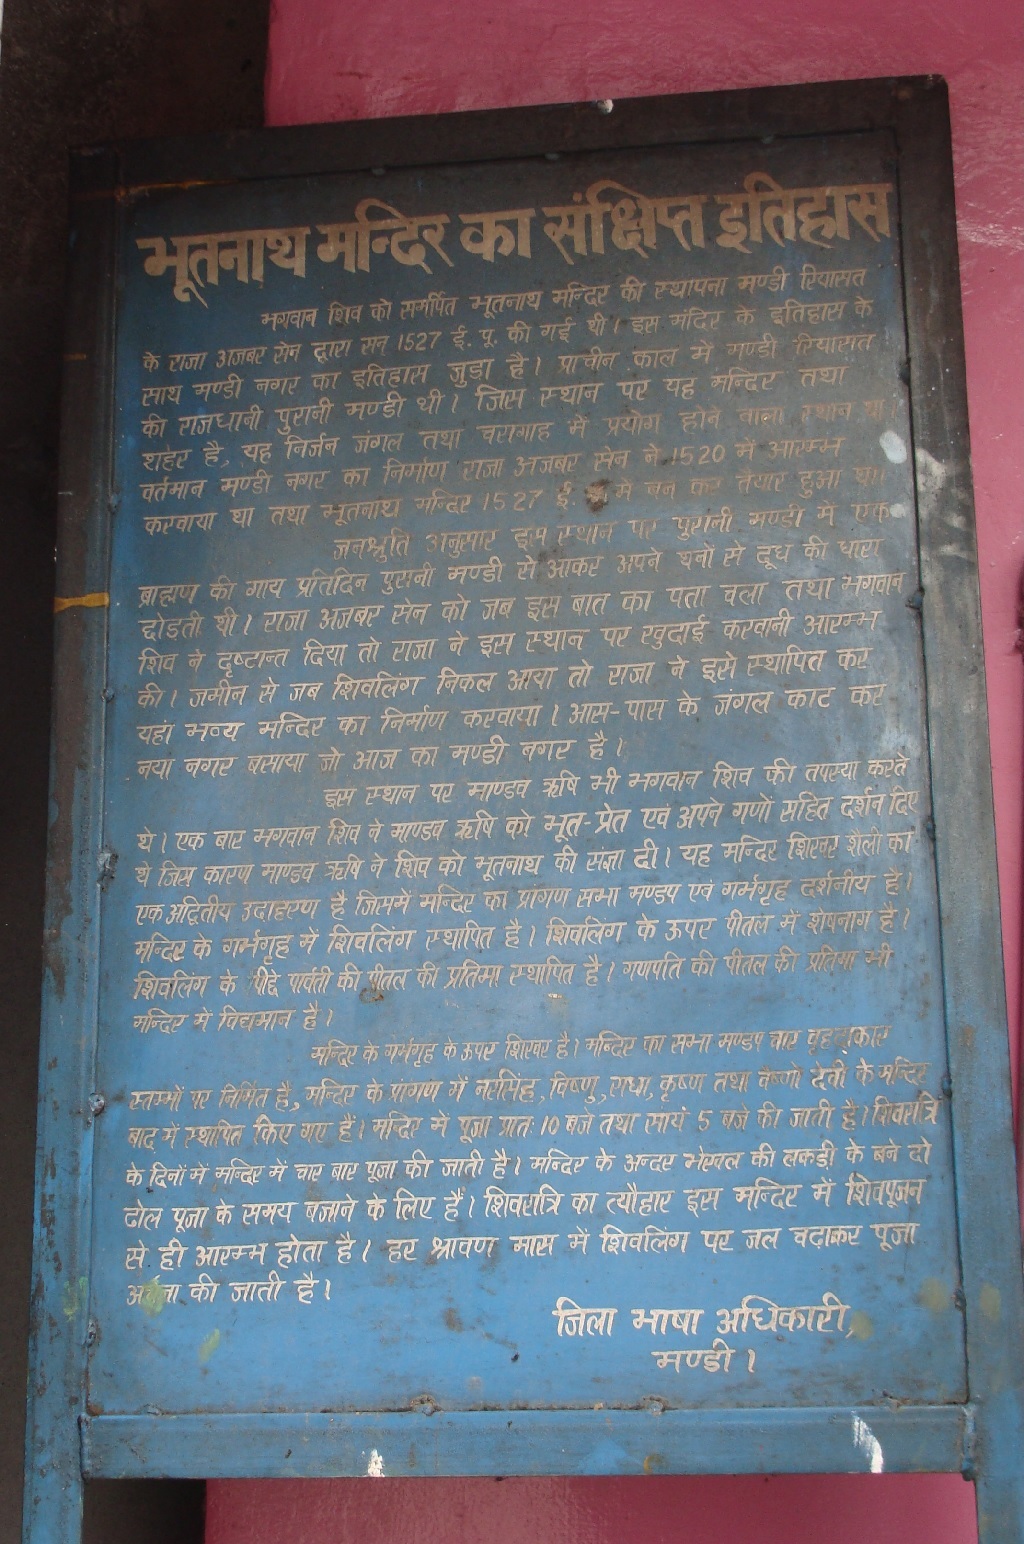 भूतनाथ मन्दिर का संक्षिप्त इतिहास
भगवान शिव को समर्पित भूतनाथ मन्दिर की स्थापना मण्डी रियासत
के राजा अजबर सेन द्वारा सन् 1527 ई. पू. की गई थी। इस मंदिर के इतिहास के
साथ मण्डी नगर का इतिहास जुड़ा है। प्राचीन काल में मण्डी रियासत
की राजधानी पुरानी मण्डी थी। जिस स्थान पर यह मन्दिर तथा
शहर है, यह निर्जन जंगल तथा चरागाह में प्रयोग होने वाला स्थान था।
वर्तमान मण्डी नगर का निर्माण राजा अजबर सेन ने 1520 में आरम्भ
करवाया था तथा भूतनाथ मन्दिर 1527 ई में बन कर तैयार हुआ था।
जनश्रुति अनुसार इस स्थान पर पुरानी मण्डी में एक
ब्राह्मण की गाय प्रतिदिन पुरानी मण्डी से आकर अपने थनों से दूध की धारा
छोडती थी। राजा अजबर सेन को जब इस बात का पता चला तथा भगवान
शिव ने दृष्टान्त दिया तो राजा ने इस स्थान पर खुदाई करवानी आरम्भ
की। जमीन से जब शिवलिंग निकल आया तो राजा ने इसे स्थापित कर
यहां भव्य मन्दिर का निर्माण करवाया। आस-पास के जंगल काट कर
नया नगर बसाया जो आज का मण्डी नगर है।
इस स्थान पर माण्डव ऋषि भी भगवान शिव की तपस्या करते
थे। एक बार भगवान शिव ने माण्डव ऋषि को भूत-प्रेत एवं अपने गणों सहित दर्शन दिए
थे जिस कारण माण्डव ऋषि ने शिव को भूतनाथ की संज्ञा दी। यह मन्दिर शिखर शैली का
एक अद्वितीय उदाहरण है जिसमें मन्दिर का प्रांगण सभा मण्डप एवं गर्भगृह दर्शनीय है।
मन्दिर के गर्भगृह में शिवलिंग स्थापित है। शिवलिंग के ऊपर पीतल में शेषनाग है।
शिवलिंग के पीछे पार्वती की पीतल की प्रतिमा स्थापित है। गणपति की पीतल की प्रतिमा भी
मन्दिर में विद्यमान है।
मन्दिर के गर्भगृह के ऊपर शिखर है। मन्दिर का सभा मण्डप चार वृहदाकार
स्तम्भों पर निर्मित है, मन्दिर के प्रांगण में नरसिंह, विष्णु, राधा, कृष्ण तथा वैष्णो देवी के मन्दिर
बाद में स्थापित किए गए हैं। मन्दिर में पूजा प्रात: 10 बजे तथा सायं 5 बजे की जाती है। शिवरात्रि
के दिनों में मन्दिर में चार बार पूजा की जाती है। मन्दिर के अन्दर भेखल की लकड़ी के बने दो
ढोल पूजा के समय बजाने के लिए हैं। शिवरात्रि का त्यौहार इस मन्दिर में शिवपूजन
से ही आरम्भ होता है। हर श्रावण मास में शिवलिंग पर जल चढ़ाकर पूजा
अर्चना की जाती है।
जिला भाषा अधिकारी,
मण्डी।